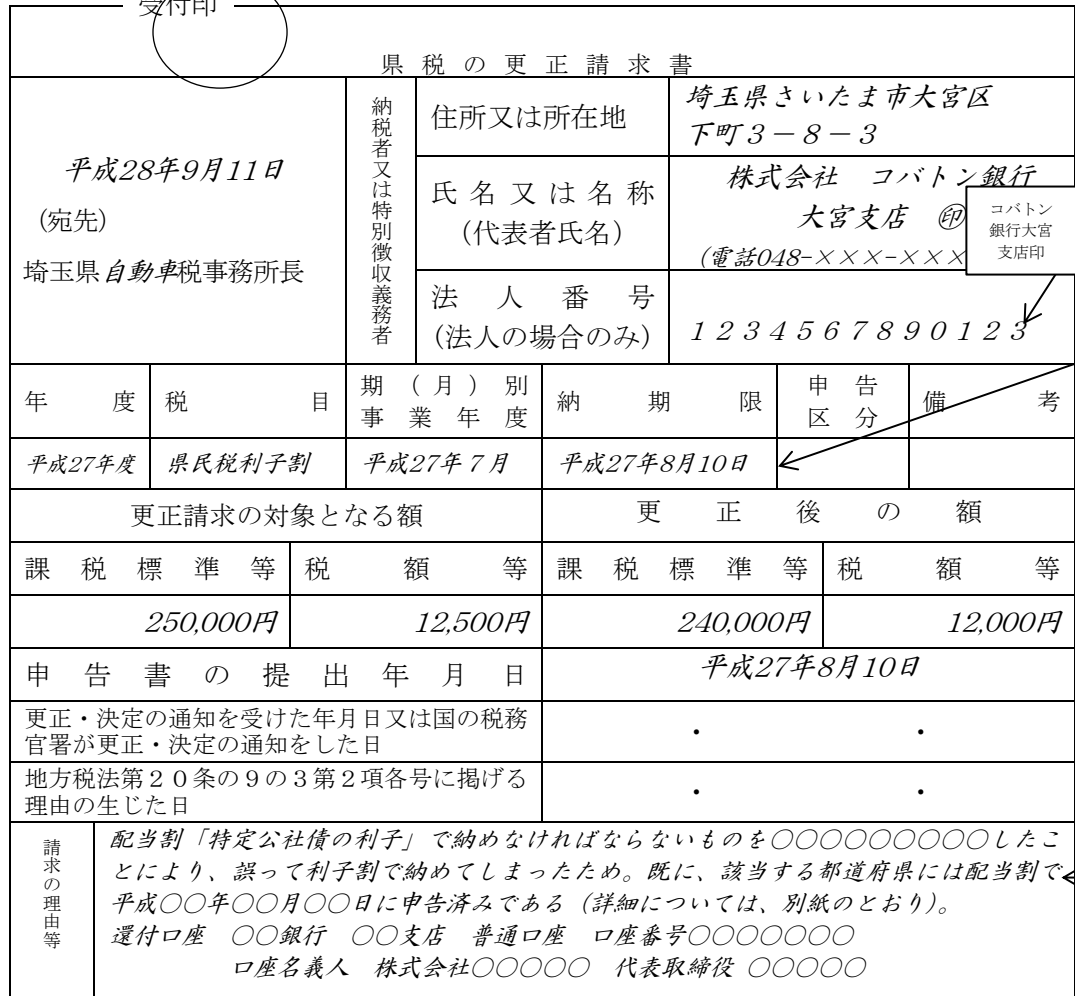 受付印
県税の更正請求書
平成28年9月11日
(宛先)
埼玉県自動車税事務所長
納税者又は特別徴収義務者
住所又は所在地
埼玉県さいたま市大宮区
下町3-8-3
氏名又は名称
(代表者氏名)
株式会社 コバトン銀行
大宮支店 ㊞
(電話048-×××-×××
コバトン
銀行大宮
支店印
法人番号
(法人の場合のみ)
1234567890123
年度
税目
期(月)別
事業年度
納期限
申告
区分
備考
平成27年度
県民税利子割
平成27年7月
平成27年8月10日
更正請求の対象となる額
更正後の額
課税標準等
税額等
課税標準等
税額等
250,000円
12,500円
240,000円
12,000円
申告書の提出年月日
平成27年8月10日
更正・決定の通知を受けた年月日又は国の税務
官署が更正・決定の通知をした日
・ ・
地方税法第20条の9の3第2項各号に掲げる
理由の生じた日
・ ・
請求の理由等
配当割「特定公社債の利子」で納めなければならないものを○○○○○○○○○したこ
とにより、誤って利子割で納めてしまったため。既に、該当する都道府県には配当割で
平成○○年○○月○○日に申告済みである(詳細については、別紙のとおり)。
還付口座 ○○銀行 ○○支店 普通口座 口座番号○○○○○○○
口座名義人 株式会社○○○○○ 代表取締役 ○○○○○